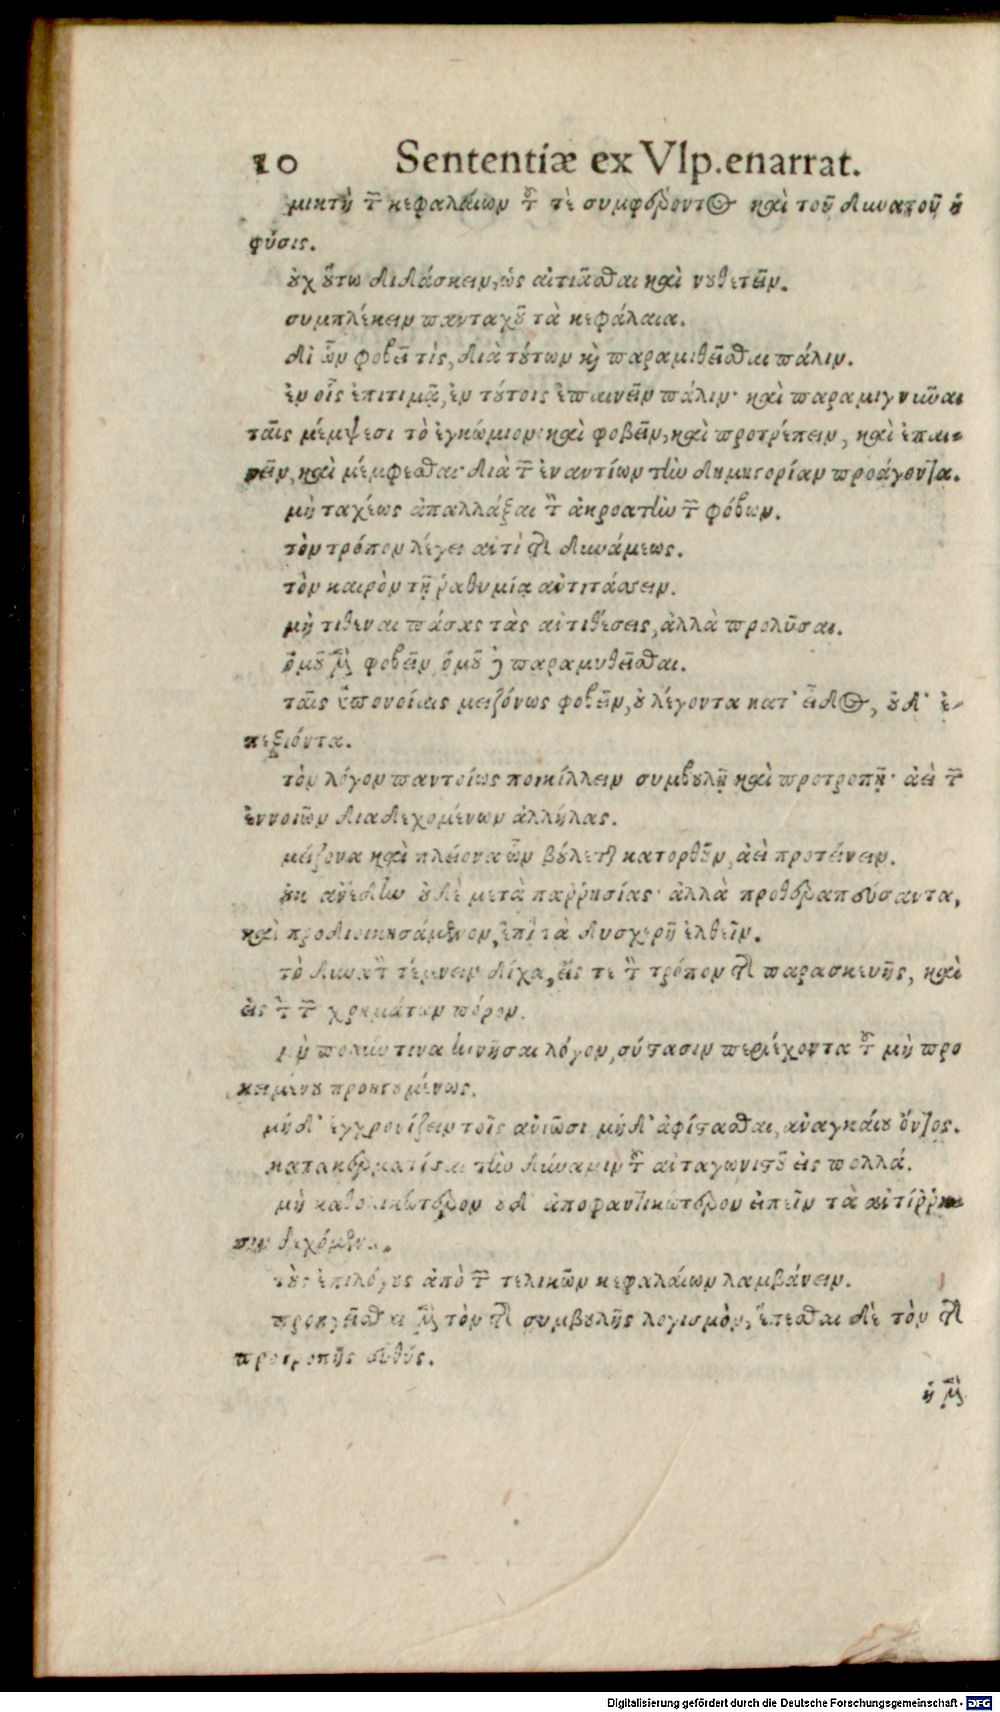 10 Sententiæ ex Vlp. enarrat.
μικτὴ τῶν κεφαλαίων τοῦ τὲ συμφέροντος καὶ τοῦ δυνατοῦ ἡ
φύσις.
οὐχ οὕτω διδάσκειν, ὡς αἰτιᾶσθαι καὶ νουθετεῖν.
συμπλέκειν πανταχοῦ τὰ κεφάλαια.
δι ὧν φοβεῖ τίς, διὰ τούτων καὶ παραμιθεῖσθαι πάλιν.
ἐν οἷς ἐπιτιμᾷ, ἐν τούτοις ἐπαινεῖν πάλιν· καὶ παραμιγνῦναι
ταῖς μέμψεσι τὸ ἐγκώμιον· καὶ φοβεῖν, καὶ προτρέπειν, καὶ ἐπαι-
νεῖν, καὶ μέμφεσθαι· διὰ τῶν ἐναντίων τὴν δημηγορίαν προάγοντα.
μὴ ταχέως ἀπαλλάξαι τὸν ἀκροατὴν τῶν φόβων.
τὸν τρόπον λέγει αντὶ τῆς δυνάμεως.
τὸν καιρὸν τῇ ῥαθυμίᾳ αντιτάσσειν.
μὴ τιθεναι πάσας τὰς αντιθέσεις, ἀλλὰ προλῦσαι.
ὁμοῦ μὲν φοβεῖν, ὁμοῦ δὲ παραμυθεῖσθαι.
ταῖς ὑπονοίαις μειζόνως φοβεῖν, οὐ λέγοντα κατ᾽ εἶδος, οὐδ᾽ ἐ-
πεξιόντα.
τὸν λόγον παντοίως ποικίλλειν συμβουλῇ καὶ προτροπῇ· ἀεὶ τῶν
ἐννοιῶν διαδεχομένων ἀλλήλας.
μείζονα καὶ πλείονα ὧν βούλεται κατορθοῦν, ἀεὶ προτείνειν.
οὐκ ανέδην οὐδὲ μετὰ παῤῥησίας· ἀλλὰ προθεραπεύσαντα,
καὶ προδιοικησάμενον, ἐπὶ τὰ δυσχερῆ ἐλθεῖν.
τὸ δυνατὸν τέμνειν δίχα, εἴς τε τὸν τρόπον τῆς παρασκευῆς, καὶ
εἰς τὸν τῶν χρημάτων πόρον.
μὴ πολιών τινα κινῆσαι λόγον, σύστασιν περιέχοντα τοῦ μὴ προ
κειμένου προηγουμένως.
μήδ᾽ ἐγχρονίζειν τοῖς ανιῶσι μήδ᾽ ἀφίστασθαι, αναγκαίου ὄντος.
κατακερματίσαι τὴν δύναμιν τοῦ ανταγωνιστοῦ εἰς πολλά.
μὴ καθολικώτερον οὐδ ἀποφαντικώτερον εἰπεῖν τὰ αντίῤῥη-
σιν δεχόμενα.
τοὺς ἐπιλόγους ἀπὸ τῶν τελικῶν κεφαλαίων λαμβάνειν.
προηγεῖσθαι μὲν τὸν τῆς συμβουλῆς λογισμὸν, ἕπεσθαι δὲ τὸν τῆς
προτροπῆς εὐθύς.
ἡ μὲν
Digitalisierung gefördert durch die Deutsche Forschungsgemeinschaft - DFG